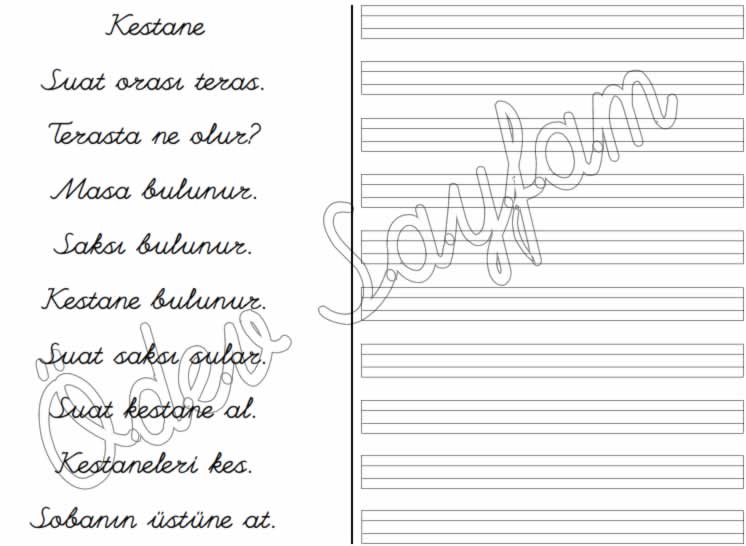 Kestane
Suat orası teras.
Terasta ne olur?
Masa bulunur.
Saksı bulunur.
Kestane bulunur.
Suat saksı sular.
Suat kestane al.
Kestaneleri kes.
Sobanın üstüne at.
Ödev Sayfam